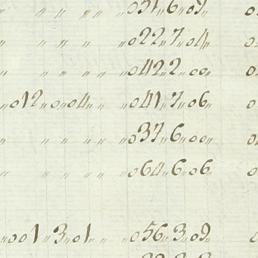 " " " " " 051"6"09"
" " " " " 022"7"04"
" " " " " 042"2"00"
"012"0"04" " " 041"7"06"
" " " " " 037"6"00"
" " " " " 064"6"06"
"001"3"01" " " 056"3"09"